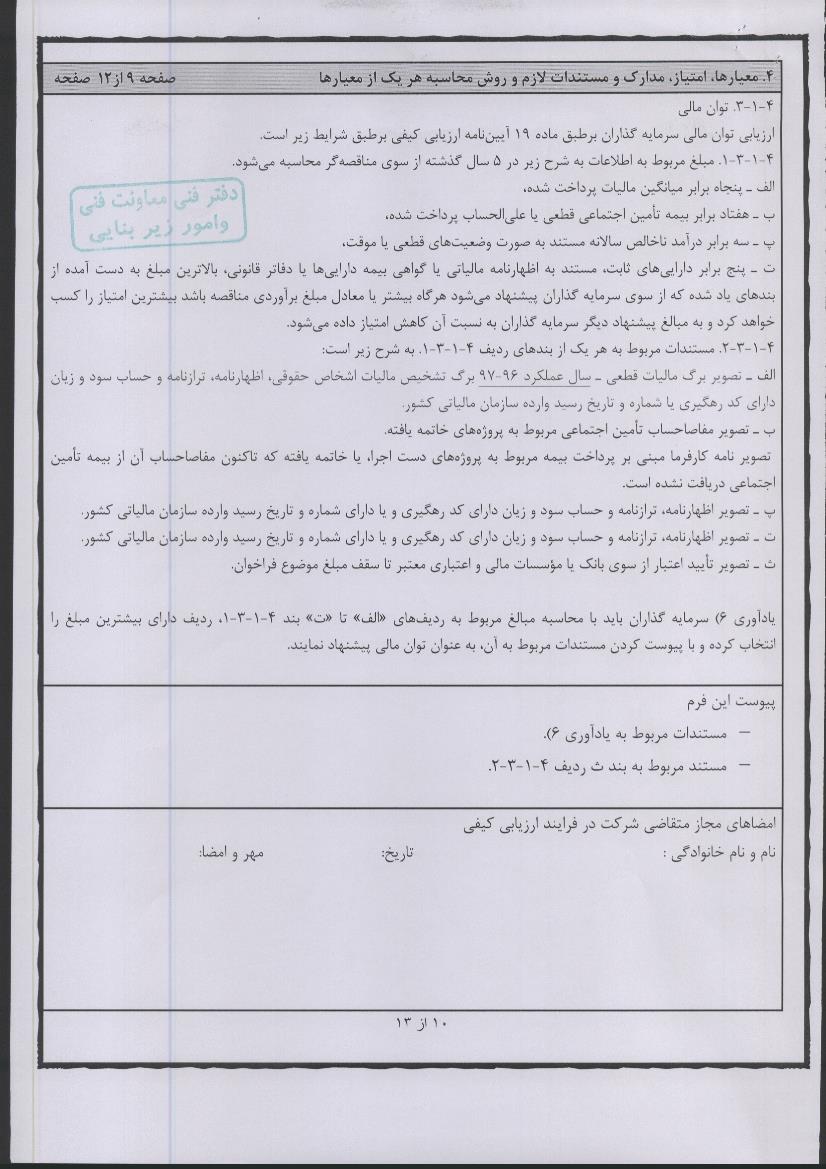 ۴. معیارها، امتیاز، مدارک و مستندات لازم و روش محاسبه هر یک از معیارها صفحه ۹ از ۱۲ صفحه
۴-۱-۳. توان مالی
ارزیابی توان مالی سرمایه گذاران برطبق ماده ۱۹ آیین‌نامه ارزیابی کیفی برطبق شرایط زیر است.
۴-۱-۳-۱. مبلغ مربوط به اطلاعات به شرح زیر در ۵ سال گذشته از سوی مناقصه‌گر محاسبه می‌شود.
دفتر فنی معاونت فنی
وامور زیر بنایی
الف ـ پنجاه برابر میانگین مالیات پرداخت شده،
ب ـ هفتاد برابر بیمه تأمین اجتماعی قطعی یا علی‌الحساب پرداخت شده،
پ ـ سه برابر درآمد ناخالص سالانه مستند به صورت وضعیت‌های قطعی یا موقت،
ت ـ پنج برابر دارایی‌های ثابت، مستند به اظهارنامه مالیاتی یا گواهی بیمه دارایی‌ها یا دفاتر قانونی، بالاترین مبلغ به دست آمده از
بندهای یاد شده که از سوی سرمایه گذاران پیشنهاد می‌شود هرگاه بیشتر یا معادل مبلغ برآوردی مناقصه باشد بیشترین امتیاز را کسب
خواهد کرد و به مبالغ پیشنهاد دیگر سرمایه گذاران به نسبت آن کاهش امتیاز داده می‌شود.
۴-۱-۳-۲. مستندات مربوط به هر یک از بندهای ردیف ۴-۱-۳-۱. به شرح زیر است:
الف ـ تصویر برگ مالیات قطعی ـ سال عملکرد ۹۶-۹۷ برگ تشخیص مالیات اشخاص حقوقی، اظهارنامه، ترازنامه و حساب سود و زیان
دارای کد رهگیری یا شماره و تاریخ رسید وارده سازمان مالیاتی کشور.
ب ـ تصویر مفاصاحساب تأمین اجتماعی مربوط به پروژه‌های خاتمه یافته.
تصویر نامه کارفرما مبنی بر پرداخت بیمه مربوط به پروژه‌های دست اجرا، یا خاتمه یافته که تاکنون مفاصاحساب آن از بیمه تأمین
اجتماعی دریافت نشده است.
پ ـ تصویر اظهارنامه، ترازنامه و حساب سود و زیان دارای کد رهگیری و یا دارای شماره و تاریخ رسید وارده سازمان مالیاتی کشور.
ت ـ تصویر اظهارنامه، ترازنامه و حساب سود و زیان دارای کد رهگیری و یا دارای شماره و تاریخ رسید وارده سازمان مالیاتی کشور.
ث ـ تصویر تأیید اعتبار از سوی بانک یا مؤسسات مالی و اعتباری معتبر تا سقف مبلغ موضوع فراخوان.
یادآوری ۶) سرمایه گذاران باید با محاسبه مبالغ مربوط به ردیف‌های «الف» تا «ت» بند ۴-۱-۳-۱، ردیف دارای بیشترین مبلغ را
انتخاب کرده و با پیوست کردن مستندات مربوط به آن، به عنوان توان مالی پیشنهاد نمایند.
پیوست این فرم
– مستندات مربوط به یادآوری ۶).
– مستند مربوط به بند ث ردیف ۴-۱-۳-۲.
امضاهای مجاز متقاضی شرکت در فرایند ارزیابی کیفی
نام و نام خانوادگی : تاریخ: مهر و امضا:
۱۰ از ۱۳